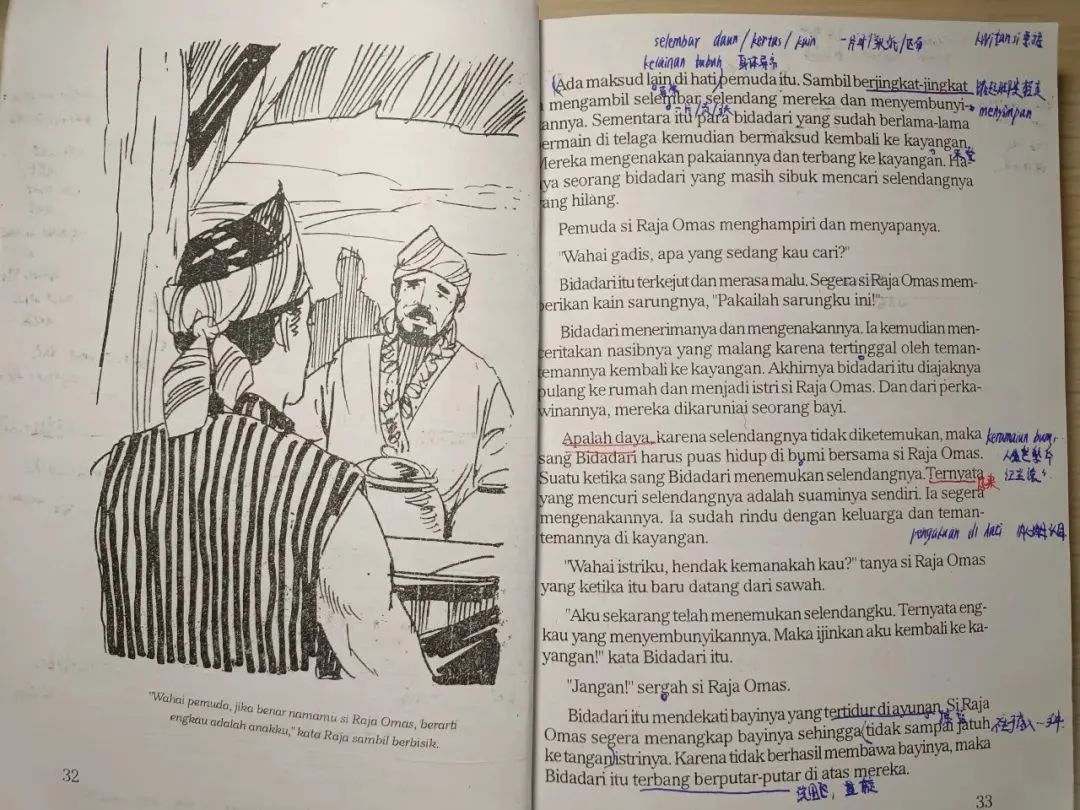 "Wahai pemuda, jika benar namamu si Raja Omas, berarti
engkau adalah anakku," kata Raja sambil berbisik.
32
selembar daun/kertas/kain
kelainan tubuh
Ada maksud lain di hati pemuda itu. Sambil berjingkat-jingkat
mengambil selembar selendang mereka dan menyembunyi-
menyimpan
annya. Sementara itu para bidadari yang sudah berlama-lama
ermain di telaga kemudian bermaksud kembali ke kayangan.
Mereka mengenakan pakaiannya dan terbang ke kayangan. Ha-
ya seorang bidadari yang masih sibuk mencari selendangnya
ang hilang.
Pemuda si Raja Omas menghampiri dan menyapanya.
"Wahai gadis, apa yang sedang kau cari?"
Bidadari itu terkejut dan merasa malu. Segera si Raja Omas mem-
berikan kain sarungnya, "Pakailah sarungku ini!"
Bidadari menerimanya dan mengenakannya. Ia kemudian men-
ceritakan nasibnya yang malang karena tertinggal oleh teman-
temannya kembali ke kayangan. Akhirnya bidadari itu diajaknya
pulang ke rumah dan menjadi istri si Raja Omas. Dan dari perka-
winannya, mereka dikaruniai seorang bayi.
Apalah daya, karena selendangnya tidak diketemukan, maka
sang Bidadari harus puas hidup di bumi bersama si Raja Omas.
Suatu ketika sang Bidadari menemukan selendangnya. Ternyata
yang mencuri selendangnya adalah suaminya sendiri. Ia segera
mengenakannya. Ia sudah rindu dengan keluarga dan teman-
temannya di kayangan.
pengakuan di hati
"Wahai istriku, hendak kemanakah kau?" tanya si Raja Omas
yang ketika itu baru datang dari sawah.
"Aku sekarang telah menemukan selendangku. Ternyata eng-
kau yang menyembunyikannya. Maka ijinkan aku kembali ke ka-
yangan!" kata Bidadari itu.
"Jangan!" sergah si Raja Omas.
Bidadari itu mendekati bayinya yang tertidur di ayunan. Si Raja
Omas segera menangkap bayinya sehingga (tidak sampai jatuh
ke tangan) istrinya. Karena tidak berhasil membawa bayinya, maka
Bidadari itu terbang berputar-putar di atas mereka.
33